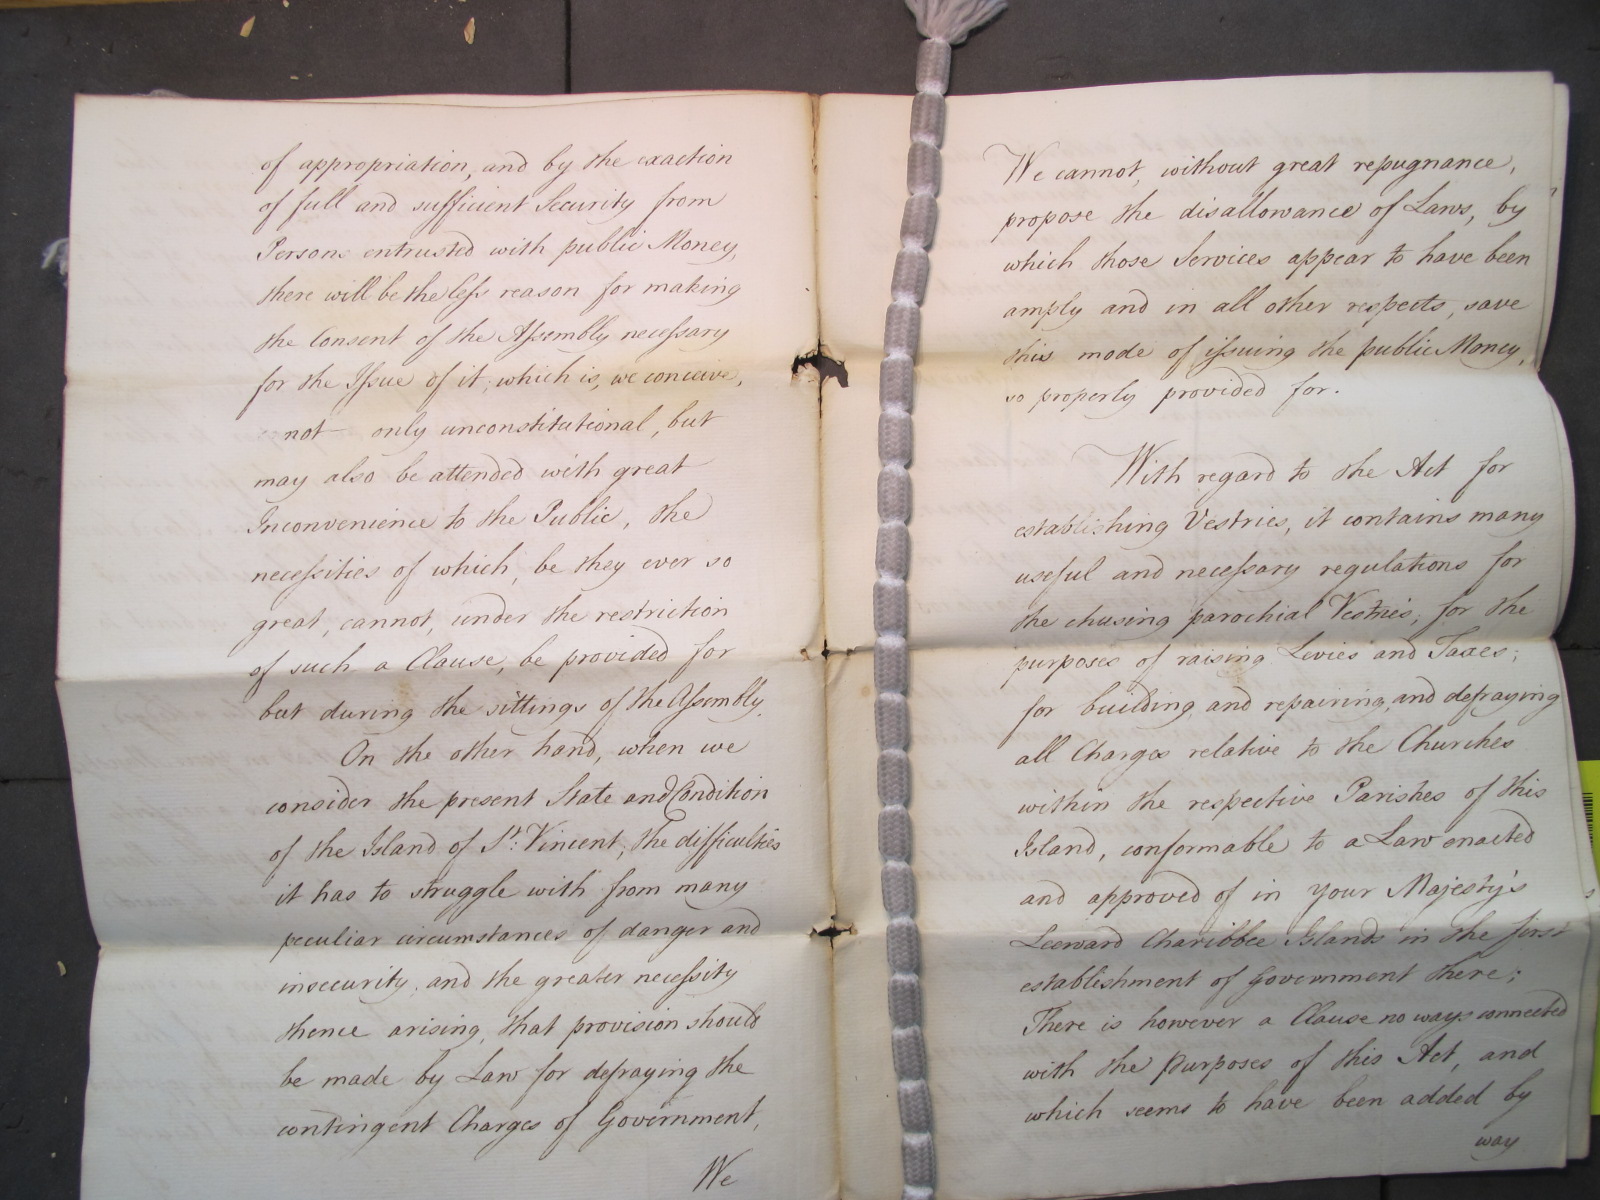 of appropriation, and by the exaction
of full and sufficient Security from
Persons entrusted with public Money,
there will be the less reason for making
the Consent of the Assembly necessary
for the Issue of it; which is, we conceive,
not only unconstitutional, but
may also be attended with great
Inconvenience to the Public, the
necessities of which, be they ever so
great, cannot, under the restriction
of such a Clause, be provided for
but during the sittings of the Assembly.
On the other hand, when we
consider the present State and Condition
of the Island of St. Vincent, the difficulties
it has to struggle with from many
peculiar circumstances of danger and
insecurity, and the greater necessity
thence arising, that provision should
be made by Law for defraying the
contingent Charges of Government,
We
We cannot, without great repugnance,
propose the disallowance of Laws, by
which those Services appear to have been
amply and in all other respects, save
this mode of issuing the public Money,
so properly provided for.
With regard to the Act for
establishing Vestries, it contains many
useful and necessary regulations for
the chusing parochial Vestries, for the
purposes of raising Levies and Taxes;
for building and repairing, and defraying
all Charges relative to the Churches
within the respective Parishes of this
Island, conformable to a Law enacted
and approved of in your Majesty's
Leeward Charibbee Islands in the first
establishment of Government there;
There is however a Clause no ways connected
with the Purposes of this Act, and
which seems to have been added by
way